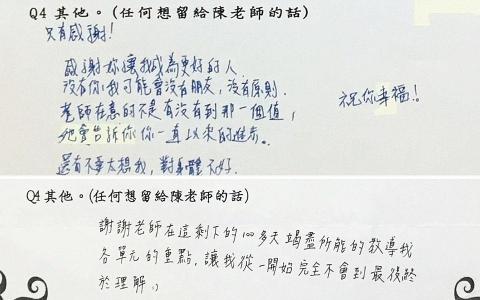 Q4 其他。(任何想留給陳老師的話)
只有感謝!
感謝妳讓我成為更好的人,
沒有你,我可能會沒有朋友,沒有原則.
老師在意的不是有沒有到那一個值,
她會告訴你你一直以來的進步。
還有不要太想我,對身體不好.
祝你幸福!
Q4 其他。(任何想留給陳老師的話)
謝謝老師在這剩下的100多天竭盡所能的教導我
各單元的重點,讓我從一開始完全不會到最後終
於理解。